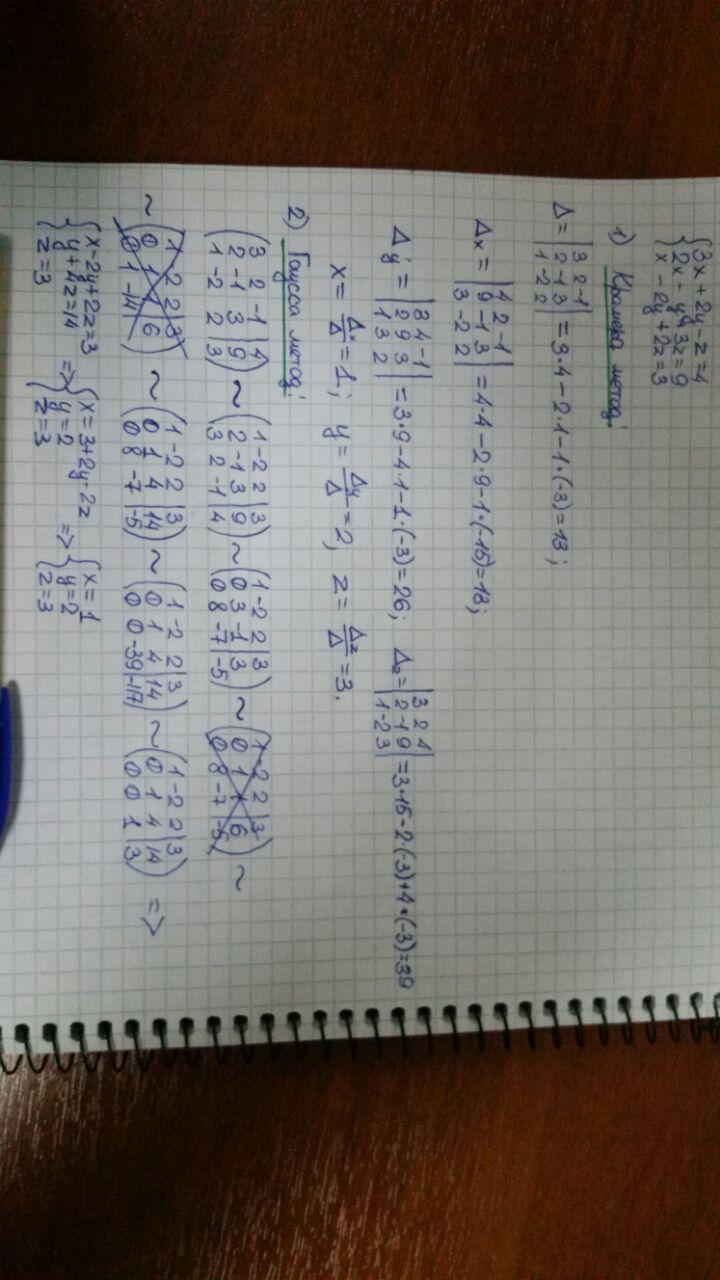 {3x + 2y - z = 4
2x - y + 3z = 9
x - 2y + 2z = 3
1) Крамера метод:
Δ = |3 2 -1; 2 -1 3; 1 -2 2| = 3·4 - 2·1 - 1·(-3) = 13;
Δx = |4 2 -1; 9 -1 3; 3 -2 2| = 4·4 - 2·9 - 1·(-15) = 13;
Δy = |3 4 -1; 2 9 3; 1 3 2| = 3·9 - 4·1 - 1·(-3) = 26; Δz = |3 2 4; 2 -1 9; 1 -2 3| = 3·15 - 2·(-3) + 4·(-3) = 39
x = Δx/Δ = 1; y = Δy/Δ = 2, z = Δz/Δ = 3.
2) Гаусса метод:
(3 2 -1 | 4; 2 -1 3 | 9; 1 -2 2 | 3) ~ (1 -2 2 | 3; 2 -1 3 | 9; 3 2 -1 | 4) ~ (1 -2 2 | 3; 0 3 -1 | 3; 0 8 -7 | -5) ~ (1 -2 2 | 3; 0 1 1 | 6; 0 8 -7 | -5) ~
~ (1 2 2 | 3; 0 1 | 6; 0 1 -14) ~ (1 -2 2 | 3; 0 1 4 | 14; 0 8 -7 | -5) ~ (1 -2 2 | 3; 0 1 4 | 14; 0 0 -39 | -117) ~ (1 -2 2 | 3; 0 1 4 | 14; 0 0 1 | 3) =>
{x - 2y + 2z = 3; y + 4z = 14; z = 3 => {x = 3 + 2y - 2z; y = 2; z = 3 => {x = 1; y = 2; z = 3